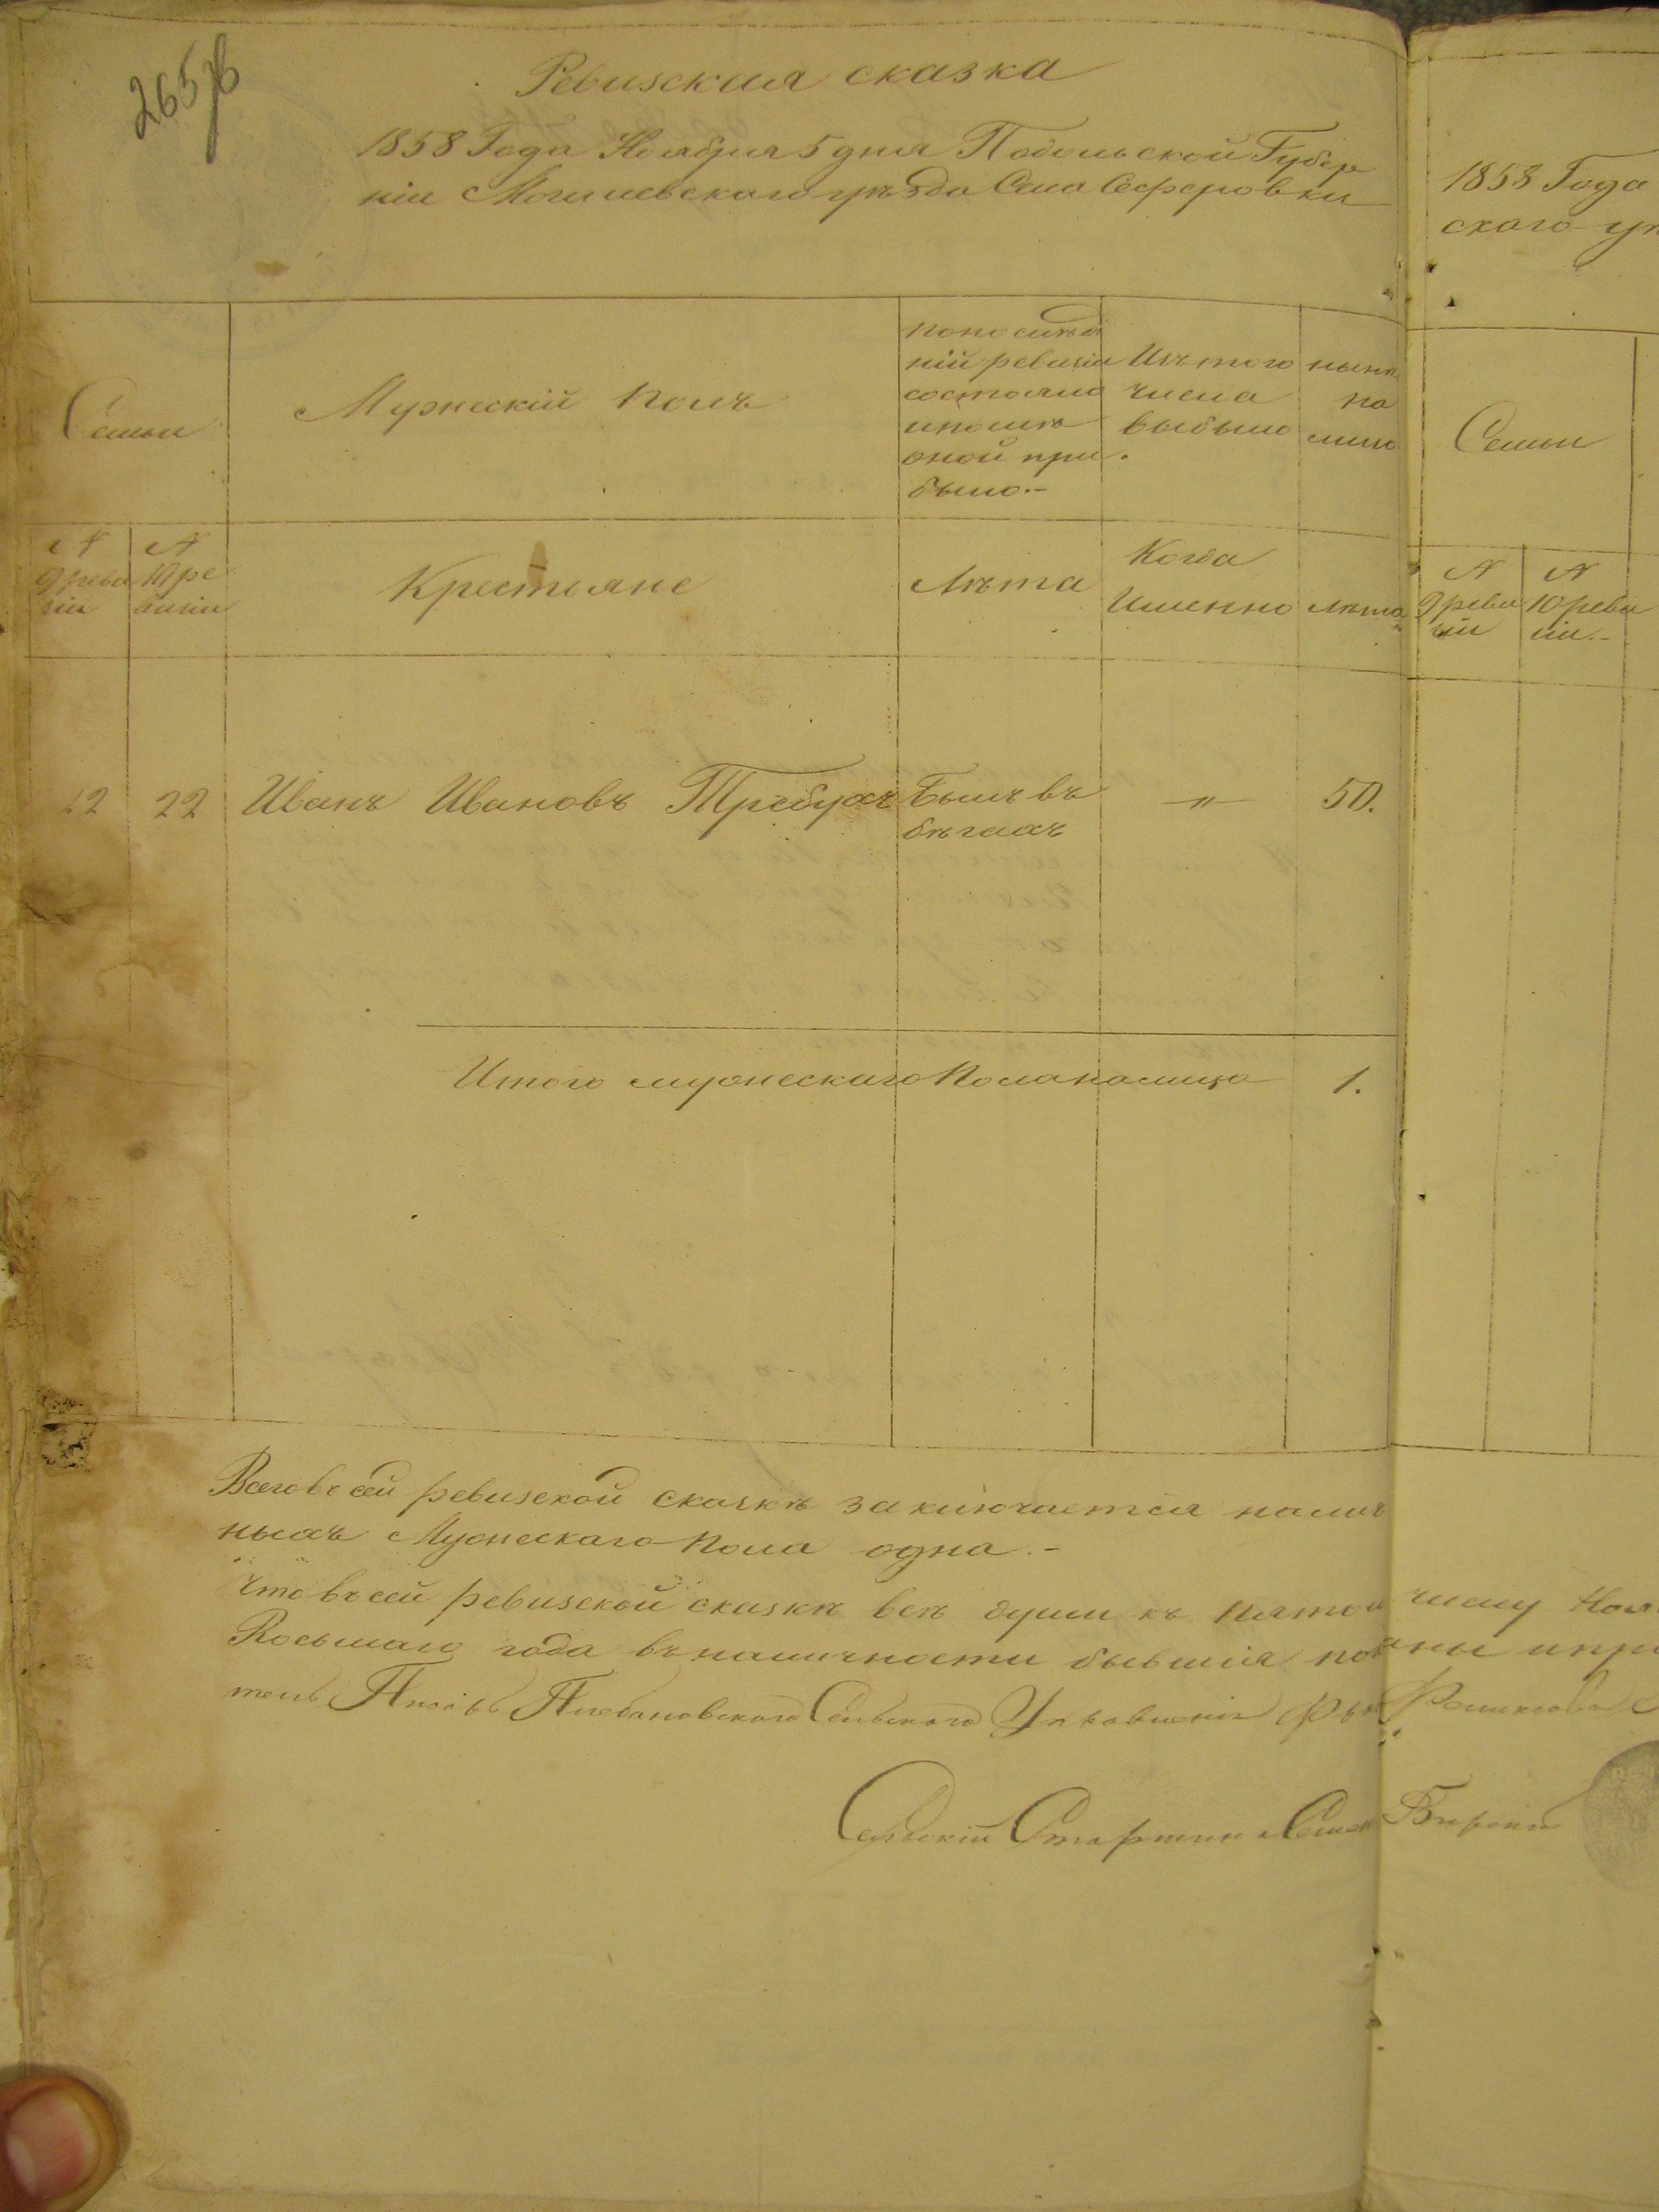 265
Ревизская сказка
1858 Года Ноября 5 дня Подольской Губер
ніи Могилевскаго уѣзда Села Сеферовки
Семьи
Мужескій полъ
по послѣд
ній ревизіи
состояло
и послѣ
оной при
было.-
Изъ того
числа
выбыло
нынѣ
на
лицо
№
9 реви
зіи
№
10 ре
визіи
Крестьяне
Лѣта
Когда
Именно
лѣта
22 22 Иванъ Ивановъ Требухъ Былъ въ
бѣгахъ
" 50.
Итого мужескаго пола налицо 1.
Всего в сей ревизской сказкѣ заключается налич
ныхъ Мужескаго пола одна.-
Что въ сей ревизской сказкѣ всѣ души къ пятому числу Ноя
Восьмаго года въ наличности бывшія по
Сельскій Старшина
1858 Года
ского у
Семьи
№
9 реви
зіи
№
10 реви
зіи.-